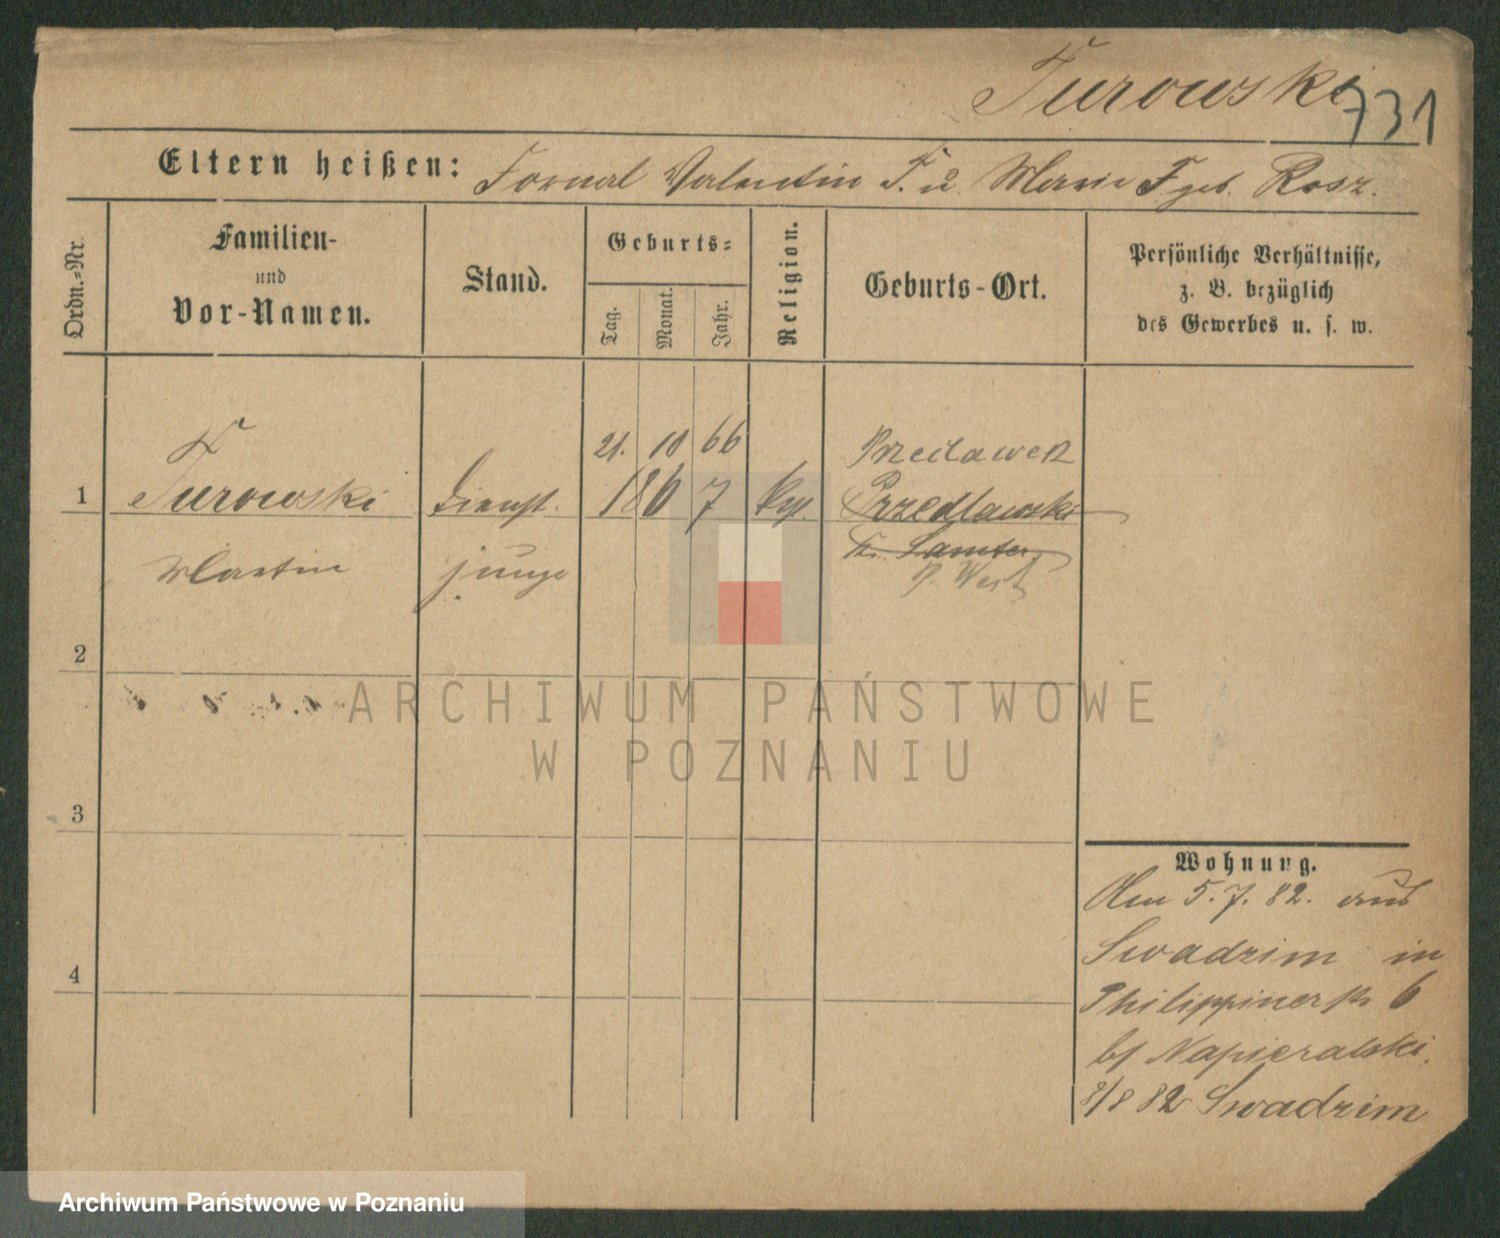 Turowski
731
Eltern heißen: Fornal Valentin T. u. Marie T geb. Rosz.
Ordn.-Nr.
Familien-
und
Vor-Namen.
Stand.
Geburts-
Tag.
Monat.
Jahr.
Religion.
Geburts-Ort.
Persönliche Verhältnisse,
z. B. bezüglich
des Gewerbes u. s. w.
21. 10 66
Przeclawek
1 Turowski Dienst- 186 7
Przedlawski
Martin junge
Kr. Samter
P. West
2
3
4
Wohnung.
Am 5.7.82. aus
Swadzim in
Philippinerstr 6
bei Napieralski.
8/8 82 Swadzim
ARCHIWUM PAŃSTWOWE
W POZNANIU
Archiwum Państwowe w Poznaniu